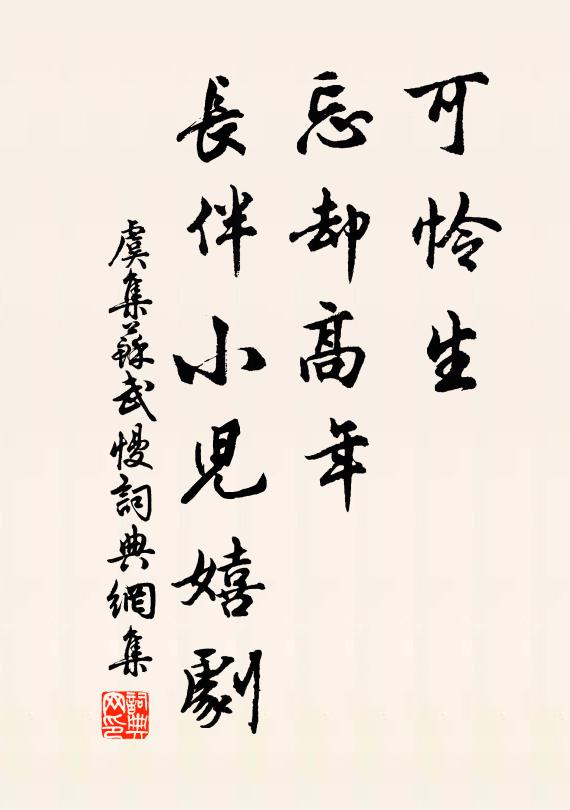 可怜生
忘却高年
長伴小児嬉劇
虞集蘇武慢詞典網集
詞典网印